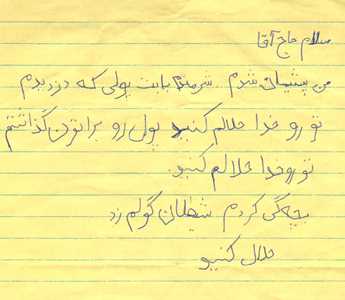 سلام حاج آقا
من پشیمان شدم شرمندم بابت پولی که دزدیدم
تورو خدا حلالم کنید پول رو براتون گذاشتم
تورو خدا حلالم کنید.
بچه گی کردم شیطان گولم زد
حلال کنید